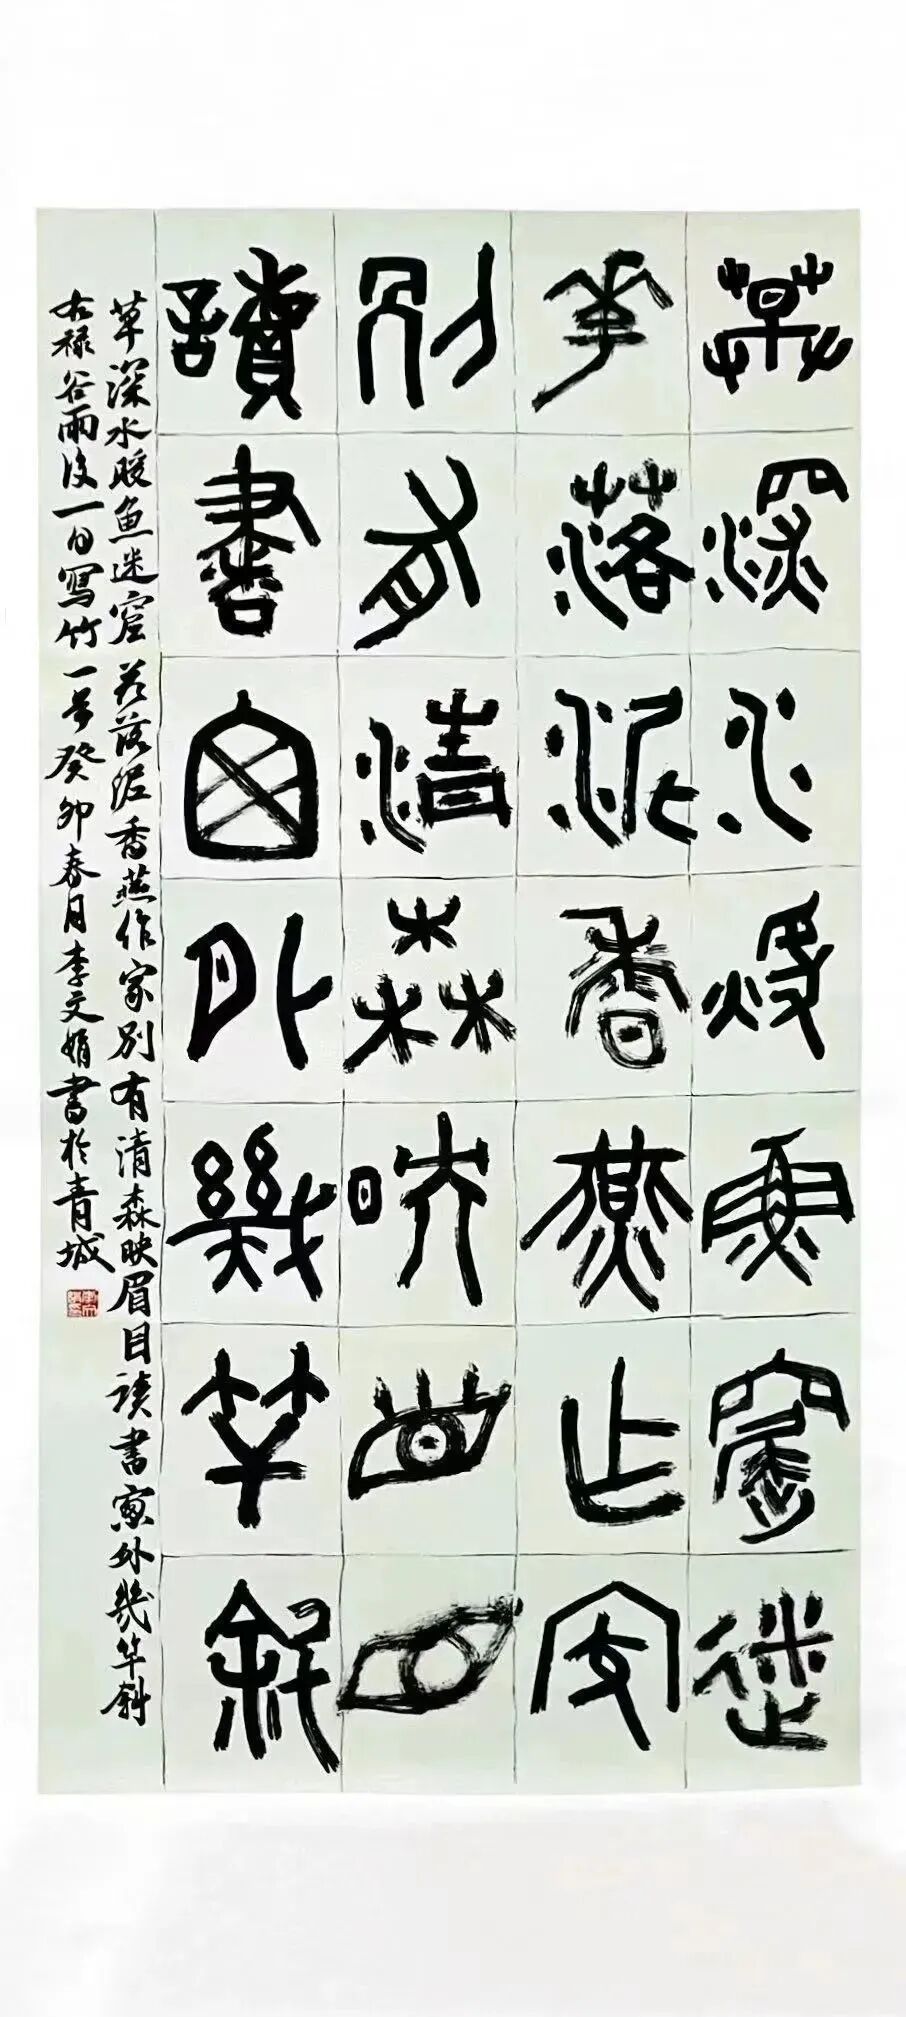 草深水暖魚迷
花落泥香燕作家
別有清森映眉目
讀書窗外幾竿斜
草深水暖魚迷窟花落泥香燕作家別有清森映眉目读書窗外幾竿斜
右禄谷雨後一日寫竹一首癸卯春月李文娟書於青城